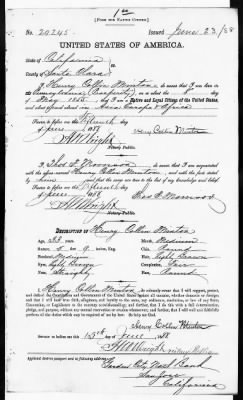 1 00
[FORM FOR NATIVE CITIZEN.]
No. 20245. Issued June 23/88
UNITED STATES OF AMERICA.
State of California
County of Santa Clara
I, Henry Collin Minton, do swear that I was born in
Pennsylvania on or about the
day of May 1855; that I am a Native and Loyal Citizen of the United States,
and about to travel abroad
Sworn to before me this Fifteenth day
of June 1888 Henry Collin Minton
Notary Public.
I, do swear that I am acquainted
with the above named Henry Collin Minton, and with the facts stated
by him and that the same are true to the best of my knowledge and belief.
Sworn to before me this Fifteenth day
of June 1888
Notary Public.
DESCRIPTION OF Henry Collin Minton
Age, 33 years. Mouth, Medium
Stature, 5 feet, 9 inches, Eng. Chin, Round
Forehead, Medium Hair, Light Brown
Eyes, Light Brown Complexion, Fair
Nose, Straight Face, Round
I, Henry Collin Minton, do solemnly swear that I will support, protect,
and defend the Constitution and Government of the United States against all enemies, whether domestic or foreign;
and that I will bear true faith, allegiance, and loyalty to the same, any ordinance, resolution, or law of any State,
Convention, or Legislature to the contrary notwithstanding; and further, that I do this with a full determination,
pledge, and purpose, without any mental reservation or evasion whatsoever; and further, that I will well and faithfully
perform all the duties which may be required of me by law: So help me God.
Henry Collin Minton
Sworn to before me this 15th day of June 1888
Notary Public
Applicant desires passport to be sent to following address:
Garden City Natl Bank
San Jose
California